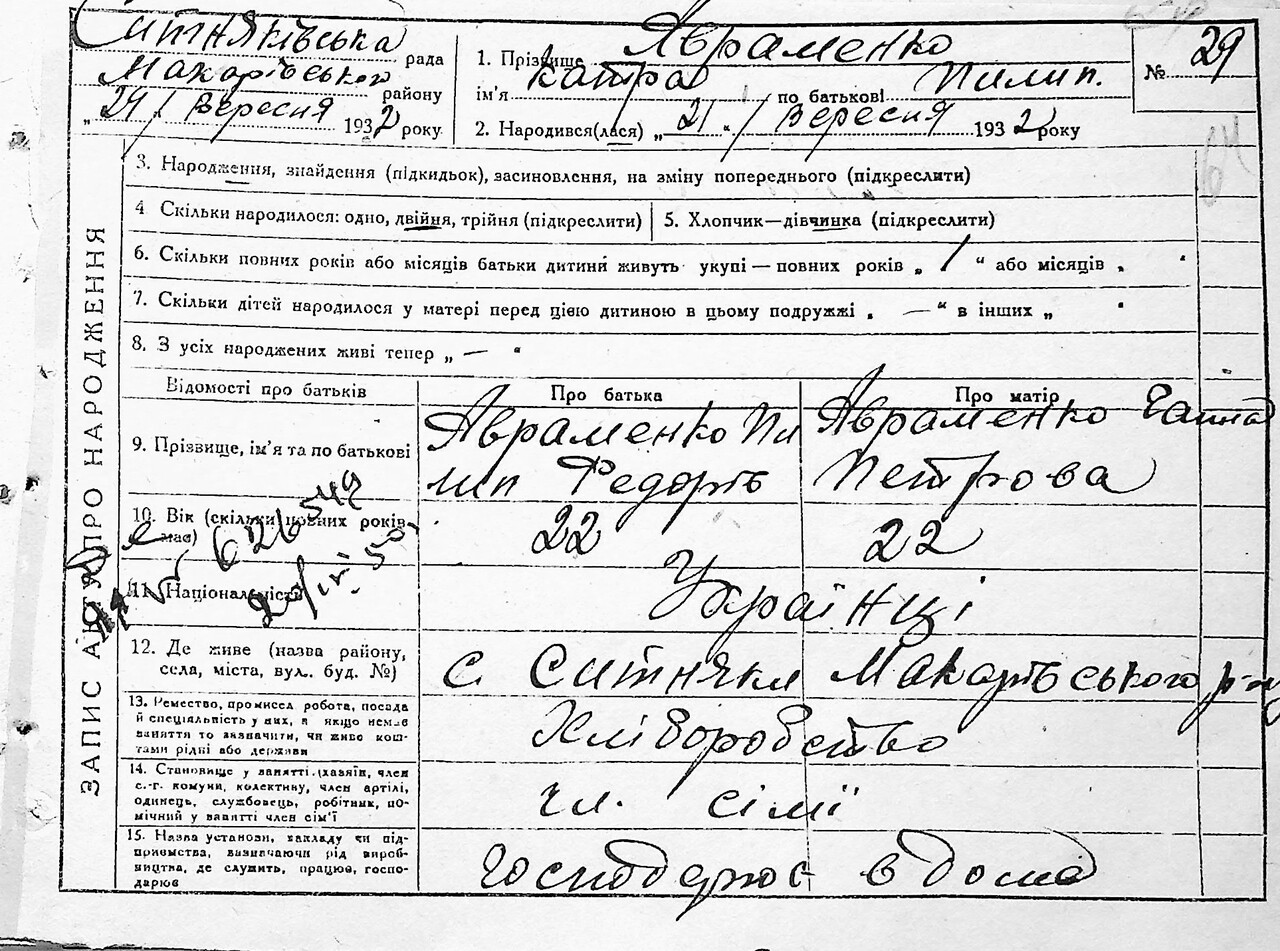 Ситняківська рада
Макарівського району
„ 29 " Вересня 1932 року
1. Прізвище Авраменко
ім'я Катря по батькові Пилип.
2. Народився(лася) „ 21 " Вересня 1932 року
№ 29
64
ЗАПИС АКТА ПРО НАРОДЖЕННЯ
3. Народження, знайдення (підкидьок), засиновлення, на зміну попереднього (підкреслити)
4 Скільки народилося: одно, двійня, трійня (підкреслити)
5. Хлопчик—дівчинка (підкреслити)
6. Скільки повних років або місяців батьки дитини живуть укупі — повних років „ 1 " або місяців „ "
7. Скільки дітей народилося у матері перед цією дитиною в цьому подружжі „ — " в інших „ "
8. З усіх народжених живі тепер „ — "
Відомості про батьків
Про батька
Про матір
9. Прізвище, ім'я та по батькові
Авраменко Пи
лип Федорів
Авраменко Ганна
Петрова
10. Вік (скільки повних років
має)
22
22
626549
11. Національність
Українці
12. Де живе (назва району,
села, міста, вул. буд. №)
с. Ситняки Макарівського р-ну
13. Ремество, промисел робота, посада
й спеціяльність у них, а якщо немає
заняття то зазначити, чи живе кош-
тами рідні або держави
Хліборобство
14. Становище у занятті (хазяїн, член
с.-г. комуни, колективу, член артілі,
одинець, службовець, робітник, по-
мічний у занятті член сім'ї
чл. сімї
15. Назва установи, закладу чи під-
приємства, зазначаючи рід вироб-
ництва, де служить, працює, госпо-
дарює
Господарює вдома